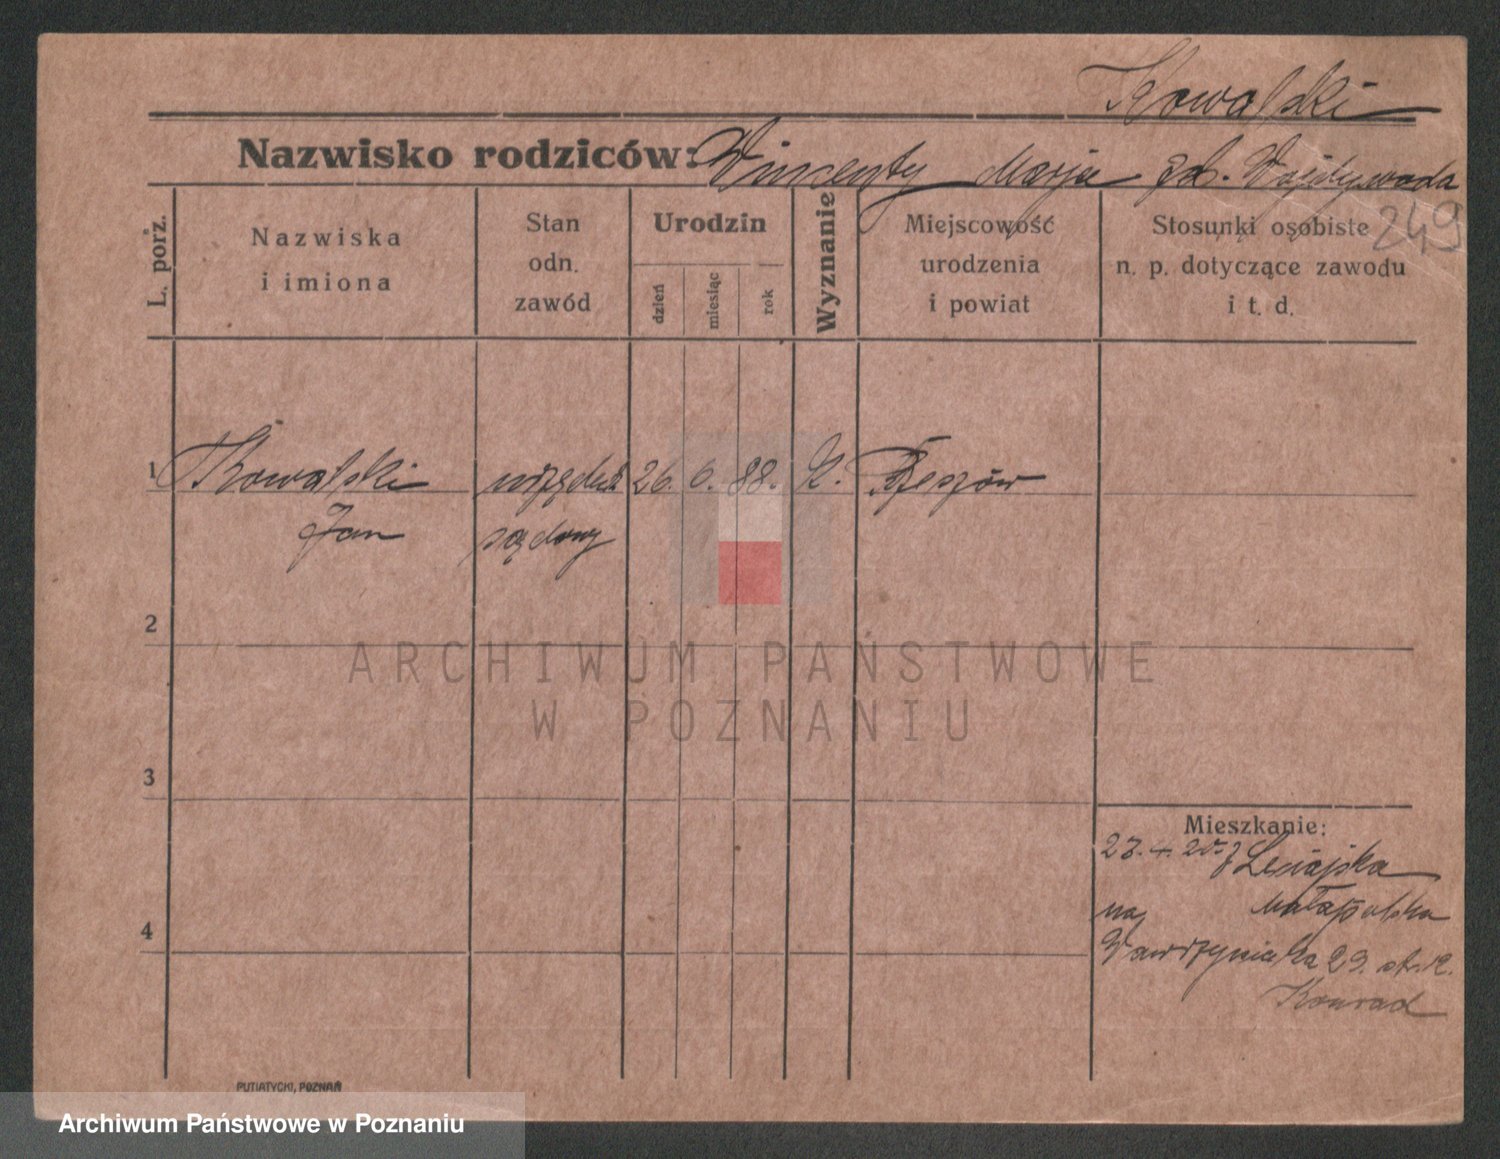 Kowalski
Nazwisko rodziców: Vincenty Marja zd. Wojdywoda
249
L. porz.
Nazwiska
i imiona
Stan
odn.
zawód
Urodzin
dzień
miesiąc
rok
Wyznanie
Miejscowość
urodzenia
i powiat
Stosunki osobiste
n. p. dotyczące zawodu
i t. d.
1 Kowalski urzędnik 26. 6. 88. K. Rzeszów
Jan sądowy
2
ARCHIWUM PAŃSTWOWE
W POZNANIU
3
Mieszkanie:
Małopolska
4
Wawrzyniaka 29. 
Konrad
PUTIATYCKI, POZNAŃ
Archiwum Państwowe w Poznaniu